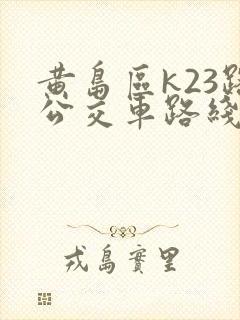 黄島區K23路
公交車路綫
戎島實里